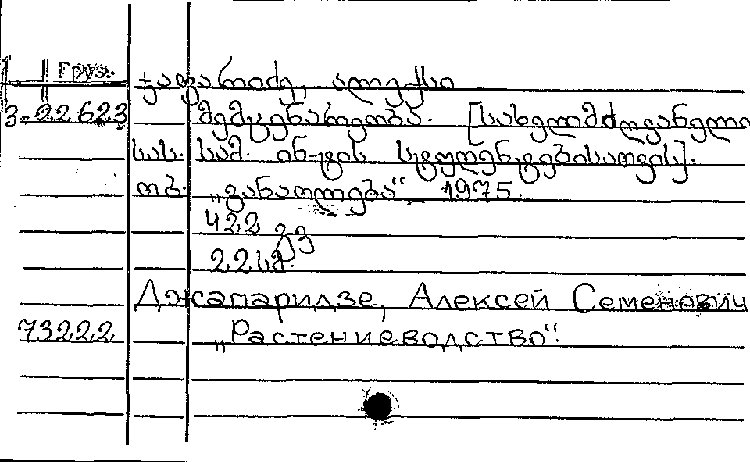 Груз.
ჯაფარიძე, ალექსი
3-22623 მემცენარეობა. [სახელმძღვანელო
სას. სამ. ინ-ტის სტუდენტებისათვის].
თბ. „განათლება“ 1975.
422 გვ
Джапаридзе, Алексей Семенович
73222 „Растениеводство“.